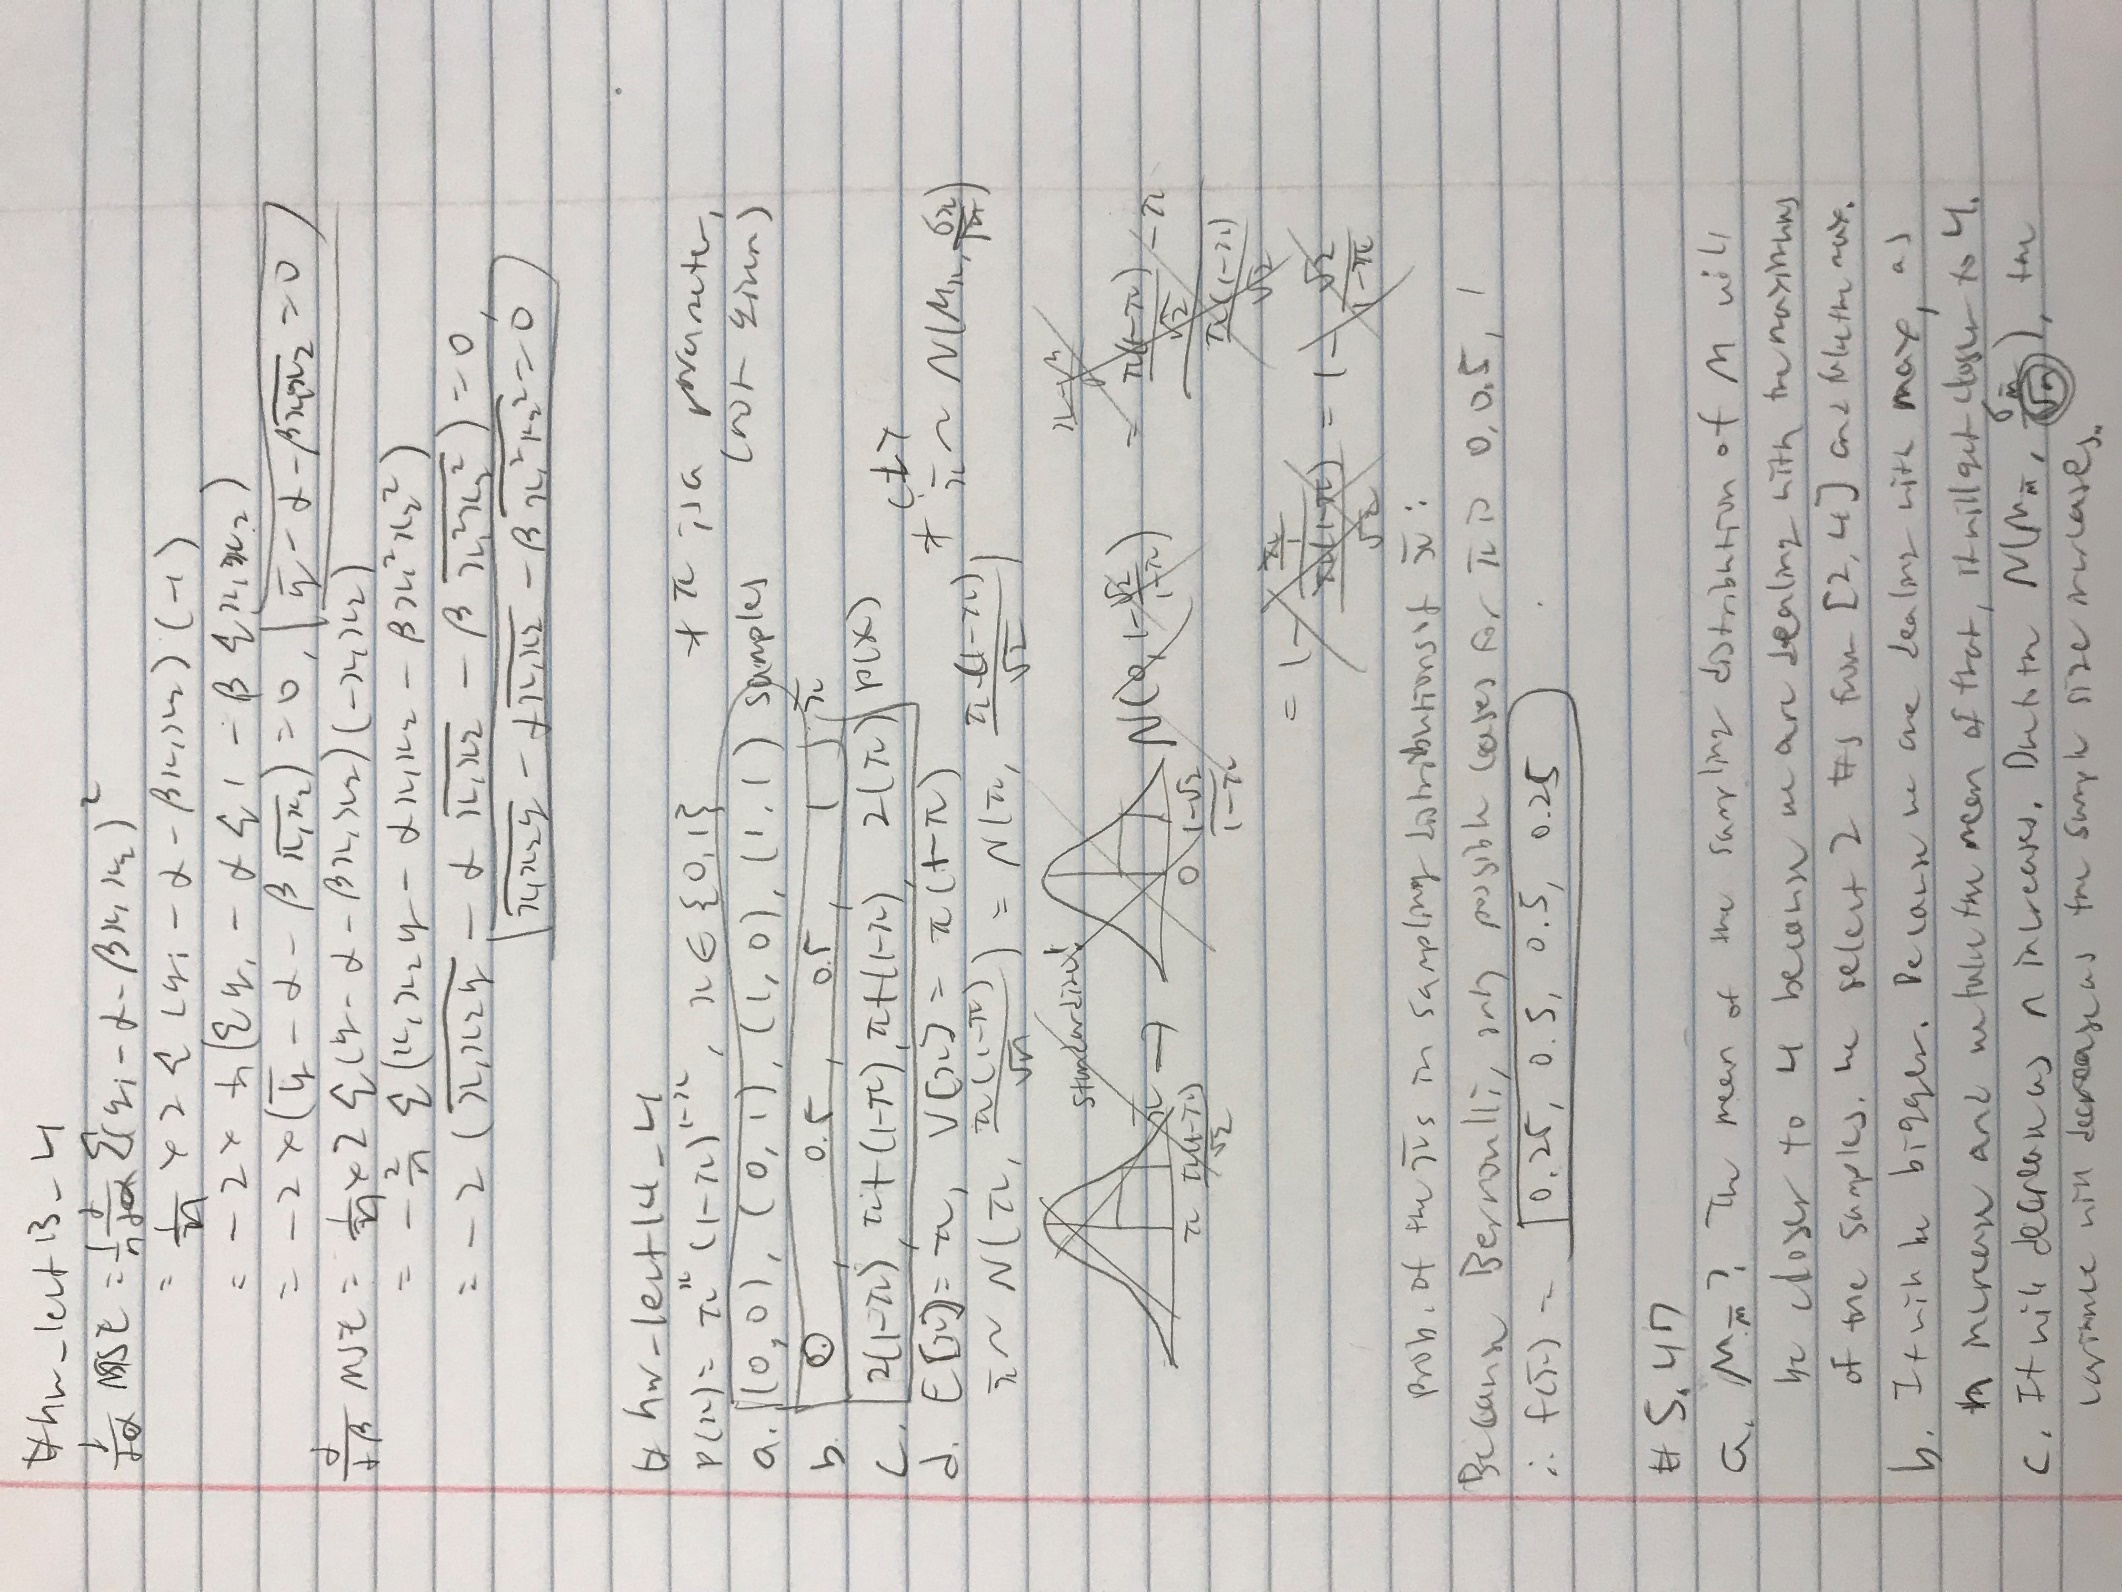 #hw_lect13_4
d/dα MSE = 1/n d/dα Σ(yi - α - βx1x2)²
= 1/n × 2 Σ (yi - α - βx1x2)(-1)
= -2 × 1/n (Σ yi - α Σ 1 - β Σ x1x2)
= -2 × (ȳ - α - β x̅1x̅2) = 0, ȳ - α - βx̅1x̅2 = 0
d/dβ MSE = 1/n × 2 Σ (y - α - βx1x2)(-x1x2)
= -2/n Σ (x1x2y - αx1x2 - βx1²x2²)
= -2 (x̅1x̅2y̅ - α x̅1x̅2 - β x̅1²x̅2²) = 0
x̅1x̅2y̅ - αx̅1x̅2 - βx̅1²x̅2² = 0
# hw_lect14_4
* π is a parameter,
p(x) = π^x (1-π)^(1-x), x ∈ {0,1} (not given)
a. (0,0), (0,1), (1,0), (1,1) samples
b. 0, 0.5, 0.5, 1 x̄
c. 2(1-π), π+(1-π), π+(1-π), 2(π) p(x)
d. E[x] = π, V[x] = π(1-π) * CLT
x̄ ~ N(π, π(1-π)/√n) = N(π, π(1-π)/√2) x̄ ~ N(μx, σx/√n)
standardized
π π(1-π)/√2 → 0 1-√2/1-π N(0, 1-√2/1-π)
= π(1-π)/√2 - π / π(1-π)/√2
= 1 - π/1 / π(1-π)/√2 = 1 - √2/1-π
prob. of the x̄'s in sampling distributions of x̄:
Because Bernoulli, only possible cases for x̄ is 0, 0.5, 1
∴ f(x̄) = 0.25, 0.5, 0.5, 0.25
# 5.47
a. μm̄? The mean of the sampling distribution of M will
be closer to 4 because we are dealing with the maximums
of the samples. We select 2 #s from [2,4] and take the max.
b. It will be bigger. Because we are dealing with max, as
n increase and we take the mean of that, it will get closer to 4.
c. It will decrease as n increases. Due to the N(μm̄, σm/√n), the
variance will decrease as the sample size increases.